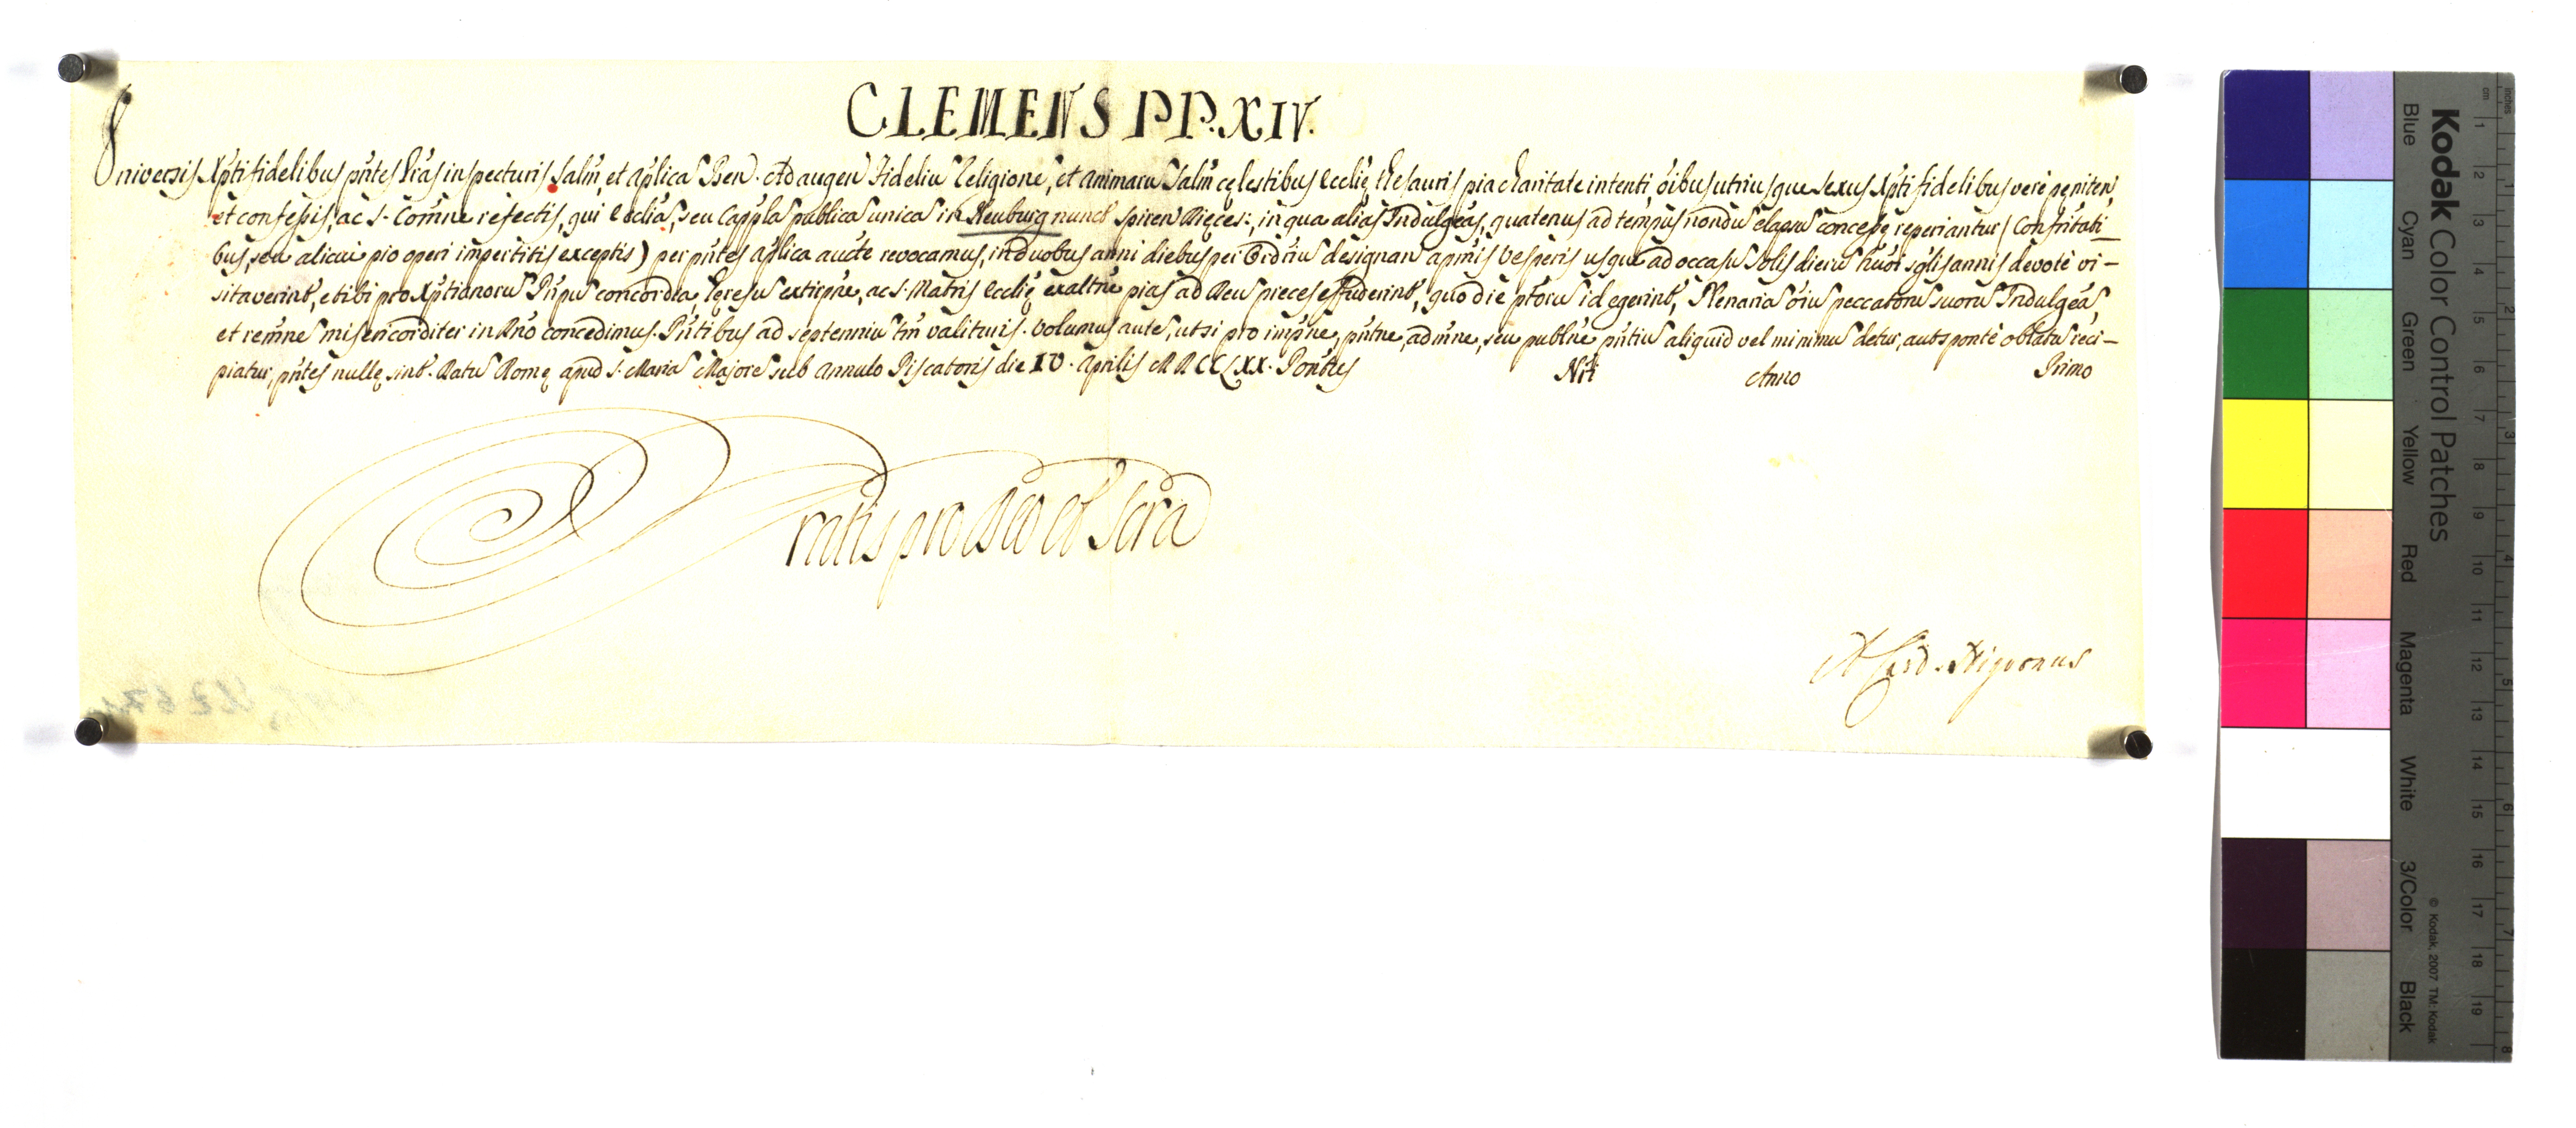 CLEMENS PP. XIV.
Universis Xpti fidelibus pntes Lras inspecturis Salm, et Aplica Ben. Ad augen Fideliu Religione, et animaru Salm cęlestibus Ecclię thesauris pia charitate intenti, oibus utriusque sexus Xpti fidelibus vere pęniten,
et confessis, ac S. Comne refectis, qui Ecclia, seu Cappla publica unica in Neuburg nuncb Spiren Dięces:, in qua alias Indulgeas, quatenus ad tempus nondu elapsu concessę reperiantur (Confritati_
bus, seu alicui pio operi impertitis exceptis) per pntes Aplica aucte revocamus, in duobus anni diebus per Ordriu designan a pmis Vesperis usque ad occasu Solis dieru huoi sglis annis devote vi-
sitaverint, et ibi pro Xptianoru Pnpu concordia, hęresu extirpne, ac S. Matris Ecclię exaltne pias ad Deu preces effuderint, quo die ptoru id egerint, Plenaria oiu peccatoru suoru Indulgeas,
et remne misericorditer in Dno concedimus. Pntibus ad septenniu tm valituris. Volumus aute, ut si pro impne, pntne, admne, seu publne pntiu aliquid vel minimu detur, aut sponte oblatu reci-
piatur, pntes nullę sint. Datu Romę apud S. Maria Majore sub Annulo Piscatoris die IV. Aprilis MDCCLXX. Pontus Nri Anno Primo
Gratis pro Deo et Scra
A Card. Nigronus
Kodak Color Control Patches
Blue Cyan Green Yellow Red Magenta White 3/Color Black
© Kodak, 2007 TM: Kodak
cm 1 2 3 4 5 6 7 8 9 10 11 12 13 14 15 16 17 18 19
inches 1 2 3 4 5 6 7 8